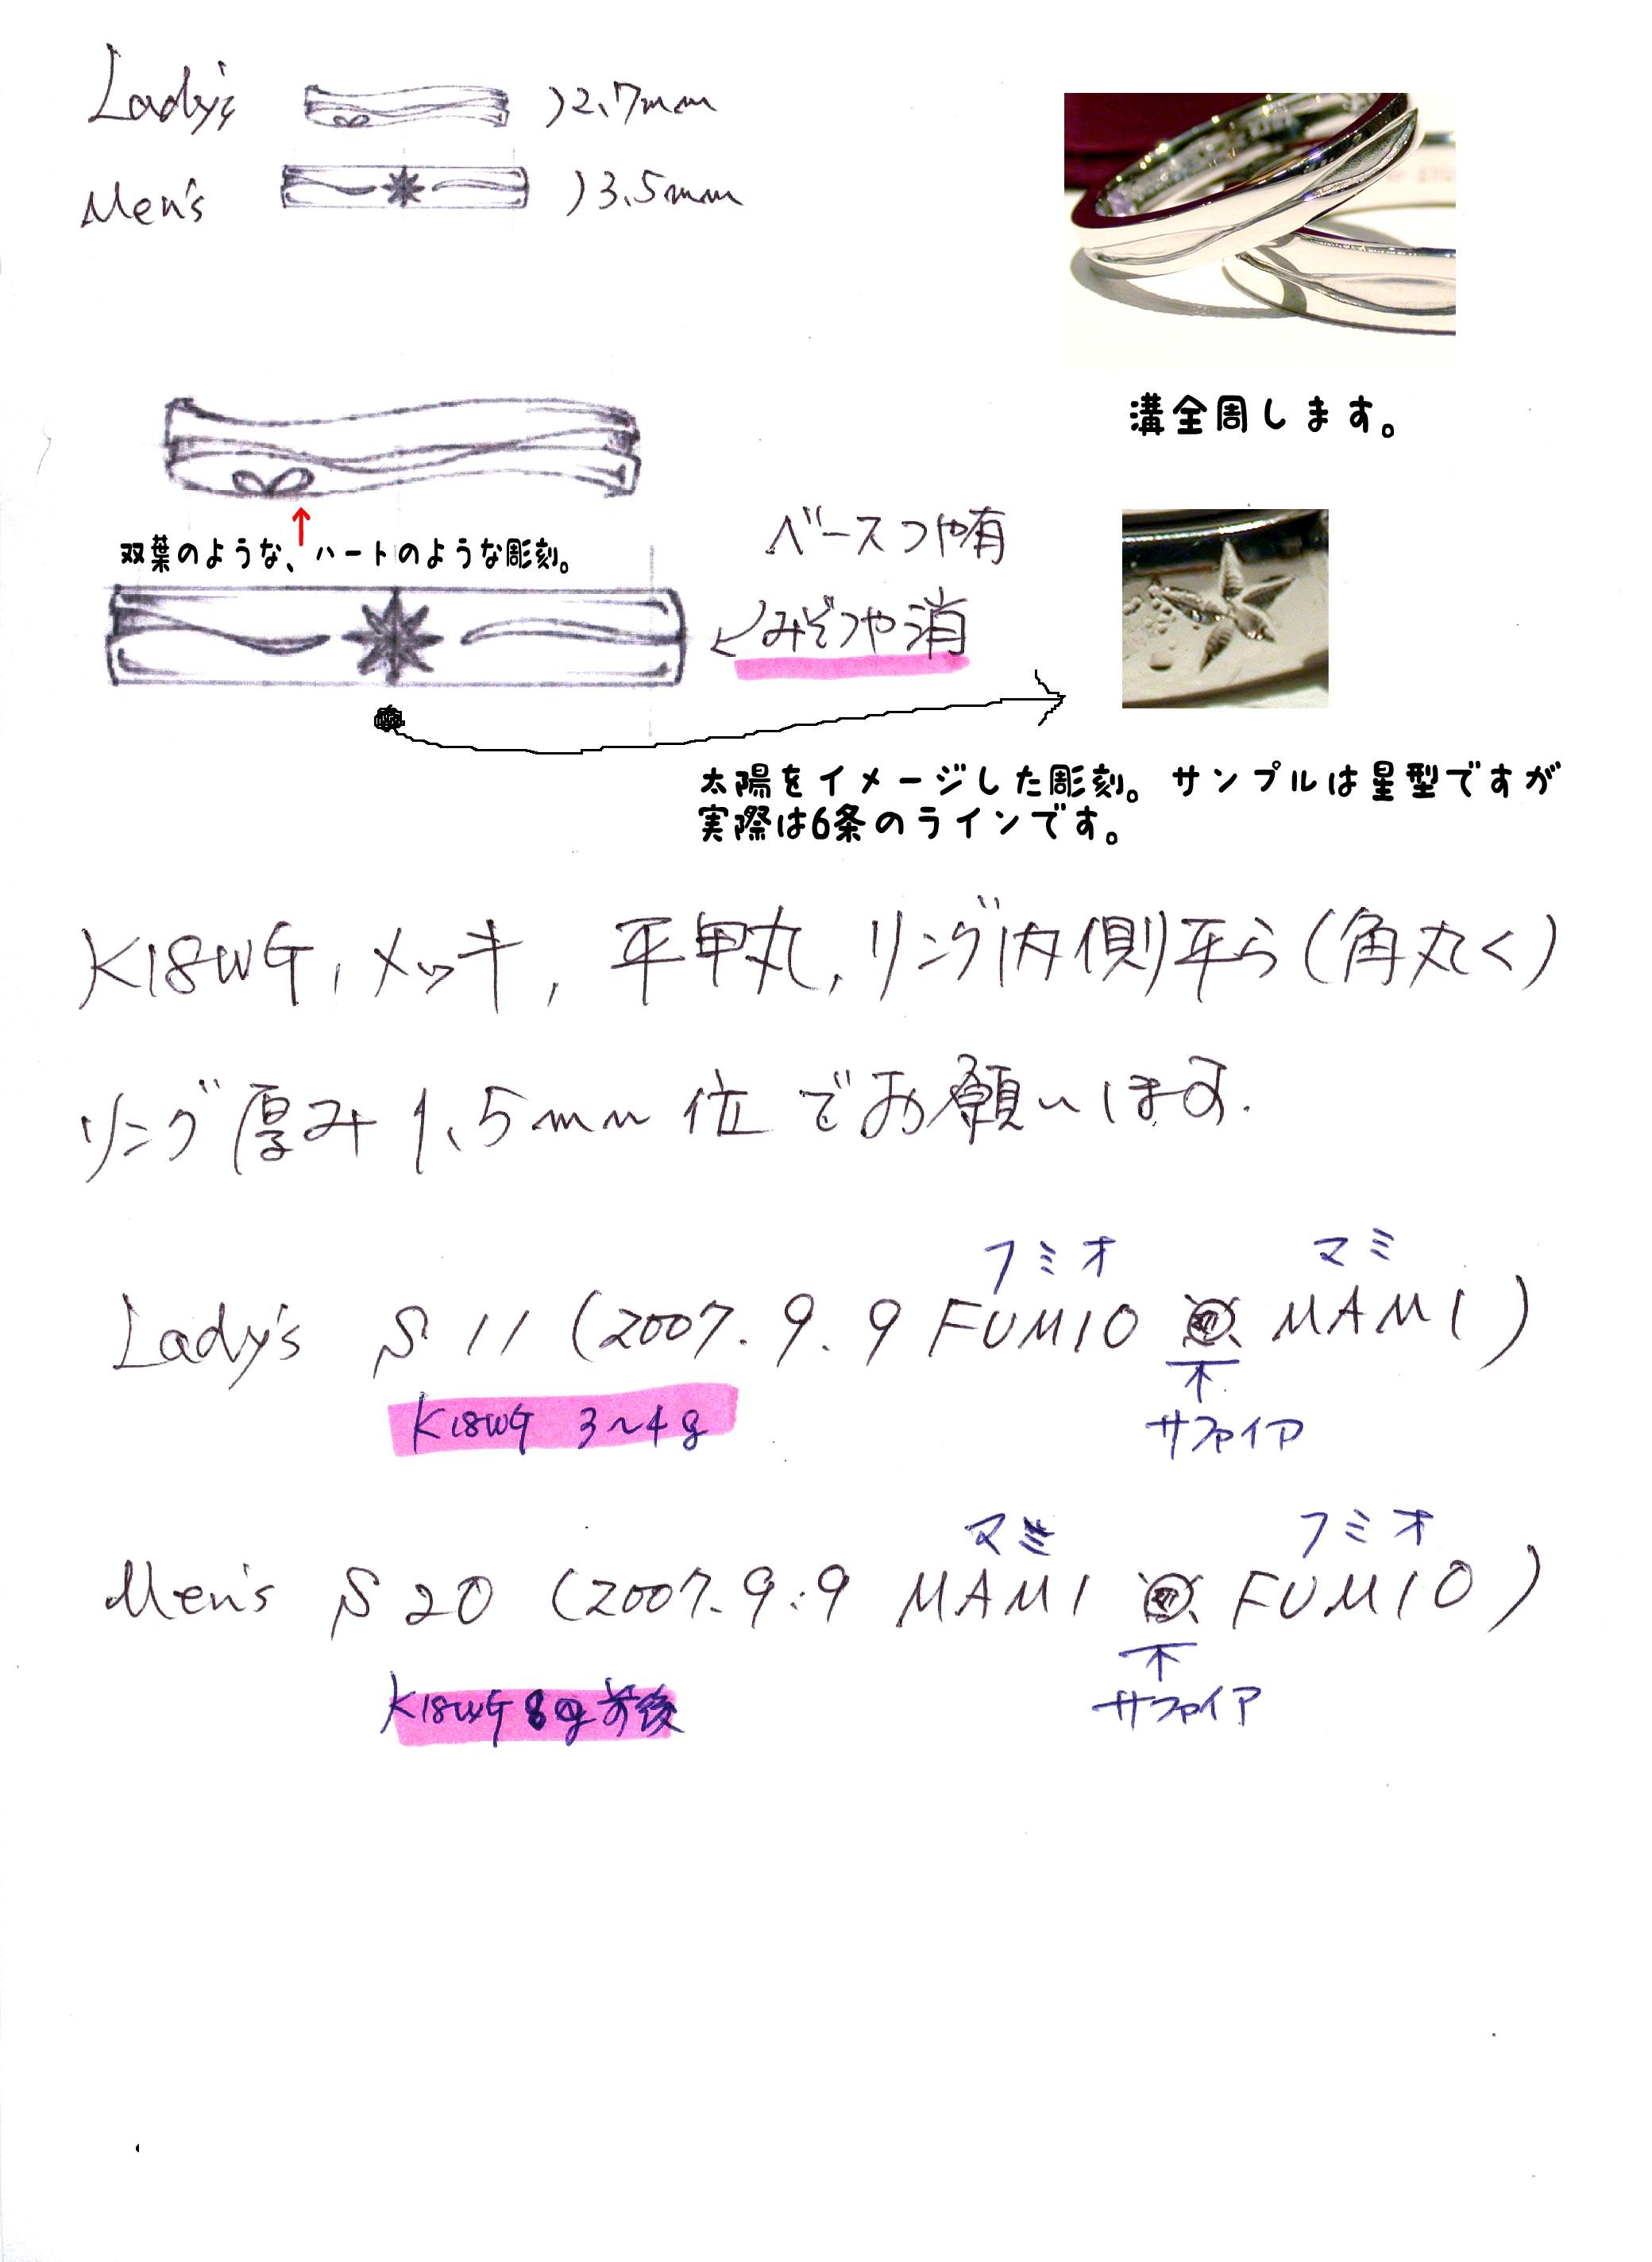 Lady's )2.7mm
Men's )3.5mm
溝全周します。
双葉のような、ハートのような彫刻。
ベースつや有
みぞつや消
太陽をイメージした彫刻。サンプルは星型ですが
実際は6条のラインです。
K18WG, メッキ, 平甲丸, リング内側平ら(角丸く)
リング厚み 1.5mm 位でお願いします.
フミオ マミ
Lady's S 11 (2007. 9. 9 FUMIO MAMI)
K18WG 3~4g
サファイア
マミ フミオ
Men's S 20 (2007. 9. 9 MAMI FUMIO)
K18WG 8g前後
サファイア